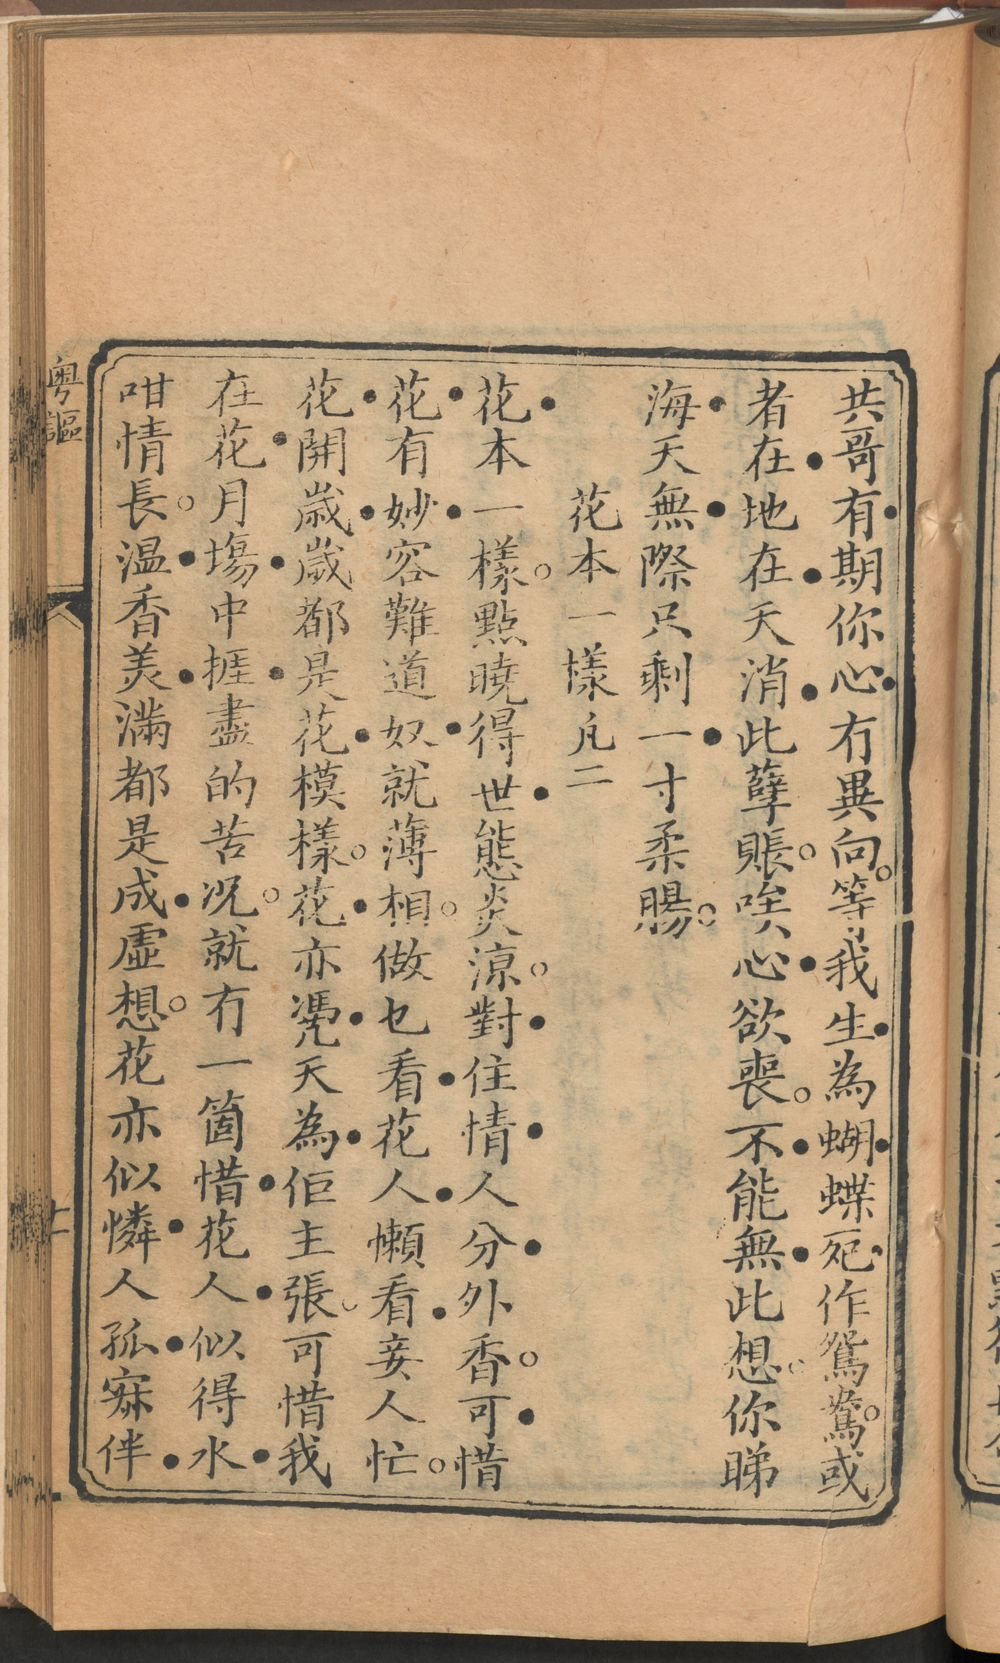 共哥有期你心冇異向等我生為蝴蝶死作鴛鴦或
者在地在天消此孽賬唉心欲喪不能無此想你睇
海天無際只剩一寸柔腸
花本一樣凡二
花本一樣點曉得世態炎涼對住情人分外香可惜
花有妙容難道奴就薄相做乜看花人懶看妾人忙
花開歲歲都是花模樣花亦憑天為佢主張可惜我
在花月塲中捱盡的苦況就冇一箇惜花人似得水
咁情長温香羙滿都是成虛想花亦似憐人孤寂伴
粤謳